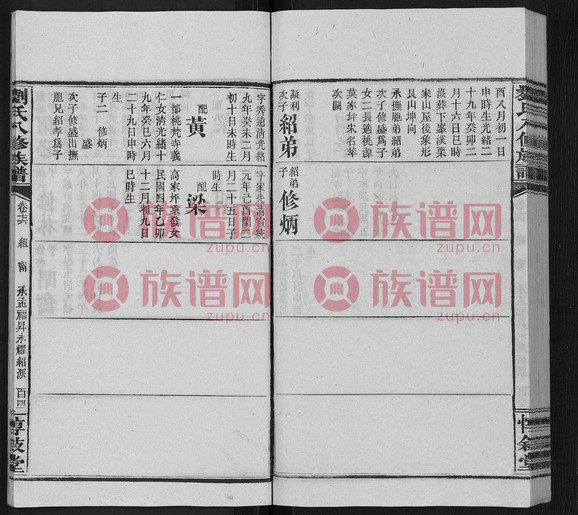 酉八月初一日
申時生光緒二
十九年癸卯二
月十六日巳時
沒葬下峯溪桌
家山屋後象形
艮山坤向
承撫胞弟紹弟
次子修盛為子
女二長適桃源
莫家圩朱名榮
次閩
凝利
次子
紹弟
紹弟
子
修炳
字秀遠清光緒
九年癸未二月
初十日未時生
配
黃
一都桃梵寺義
仁女清光緒十
九年癸巳六月
二十九日申時
生
子二 修炳
盛
次子修盛出撫
胞兄紹孝為子
元年己酉閏二
月二十五日子
時生
配
梁
高家圩業發女
民國四年乙卯
十二月初九日
巳時生
劉氏八修族譜
卷六
承孟福昇永耀紹派
百四
惇敘堂
族谱网
zupu.cn
族谱网
zupu.cn
族谱网
zupu.cn
族谱网
zupu.cn